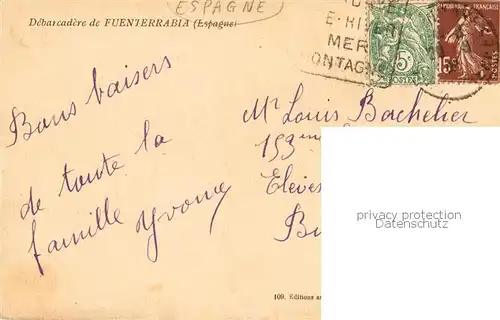 ESPAGNE
Débarcadère de FUENTERRABIA (Espagne)
MER
ONTAGNE
5
POSTES
FRANÇAISE
15
POSTES
Bons baisers
de toute la
famille Yvonne
Mr Louis Bachelier
153me
Elèves
privacy protection
Datenschutz
109. Editions